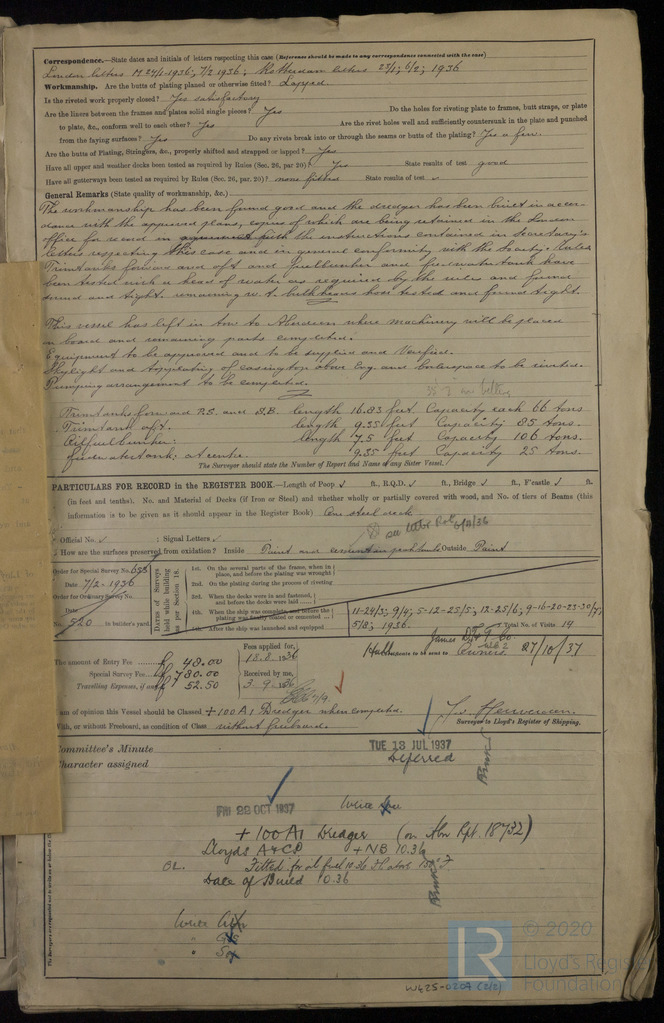 Correspondence.—State dates and initials of letters respecting this case (Reference should be made to any correspondence connected with the case)
London letters M 24/1 1936; 7/2 1936; Rotterdam letters 23/1; 6/2; 1936
Workmanship. Are the butts of plating planed or otherwise fitted? Lapped.
Is the riveted work properly closed? Yes satisfactory
Are the liners between the frames and plates solid single pieces? Yes Do the holes for riveting plate to frames, butt straps, or plate
to plate, &c., conform well to each other? Yes Are the rivet holes well and sufficiently countersunk in the plate and punched
from the faying surfaces? Yes Do any rivets break into or through the seams or butts of the plating? Yes a few.
Are the butts of Plating, Stringers, &c., properly shifted and strapped or lapped? Yes
Have all upper and weather decks been tested as required by Rules (Sec. 26, par 20)? Yes State results of test good
Have all gutterways been tested as required by Rules (Sec. 26, par. 20)? none fitted State results of test ✓
General Remarks (State quality of workmanship, &c.)
The workmanship has been found good and the dredger has been built in accor-
dance with the approved plans, copies of which are being retained in the London
office for record in the instructions contained in Secretary's
letters respecting this case and in general conformity with the Society's Rules
Trimtanks forward and aft and fuelbunker and feedwatertank have
been tested with a head of water as required by the rules and found
sound and tight. remaining w.t. bulkheads hose tested and found tight.
This vessel has left in tow to Aberdeen where machinery will be placed
on board and remaining parts completed.
Equipment to be approved and to be supplied and Verified.
Skylight and topplating of casingtop above Eng. and boilerspace to be riveted.
Pumping arrangement to be completed.
Trimtanks forward P.S. and S.B. length 16.83 feet. Capacity each 66 tons
Trimtank aft. length 9.35 feet Capacity 85 tons.
Oilfuelbunker: length 7.5 feet Capacity 106 tons.
Feedwatertank: at centre. 9.35 feet Capacity 25 tons.
The Surveyor should state the Number of Report and Name of any Sister Vessel.
PARTICULARS FOR RECORD in the REGISTER BOOK.—Length of Poop ✓ ft., R.Q.D. ✓ ft., Bridge ✓ ft., F'castle ✓ ft.
(in feet and tenths). No. and Material of Decks (if Iron or Steel) and whether wholly or partially covered with wood, and No. of tiers of Beams (this
information is to be given as it should appear in the Register Book) One steel deck
Official No. ✓ ; Signal Letters ✓
How are the surfaces preserved from oxidation? Inside Paint and cement in peak tanks Outside Paint
Order for Special Survey No. 653
Date 7/2-1936
Order for Ordinary Survey No.
Date
No. 520 in builder's yard.
Dates of Surveys held while building as per Section 18.
1st. On the several parts of the frame, when in place, and before the plating was wrought
2nd. On the plating during the process of riveting
3rd. When the beams were in and fastened, and before the decks were laid
4th. When the ship was complete, and before the plating was finally coated or cemented
5th. After the ship was launched and equipped
11-24/3; 9/4; 5-12-25/5; 12-25/6; 9-16-20-23-30/7;
5/8; 1936. Total No. of Visits 14
The amount of Entry Fee £ 48.00
Special Survey Fee £ 780.00
Travelling Expenses, if any £ 52.50
Fees applied for,
18.8.1936
Received by me,
3-9-1936
27/10/37
I am of opinion this Vessel should be Classed +100A1 Dredger when completed.
With, or without Freeboard, as condition of Class without freeboard.
Surveyor to Lloyd's Register of Shipping.
Committee's Minute
TUE 13 JUL 1937
Deferred
Character assigned
FRI 22 OCT 1937
+100A1 Dredger (on Abn Rpt. 18732)
Lloyds A&CP +NB 10.36
OL. Fitted for oil fuel 10.36 F.P. above 150°F.
Date of Build 10.36
© 2020
LR
Lloyd's Register
Foundation
W425-0204 (2/2)